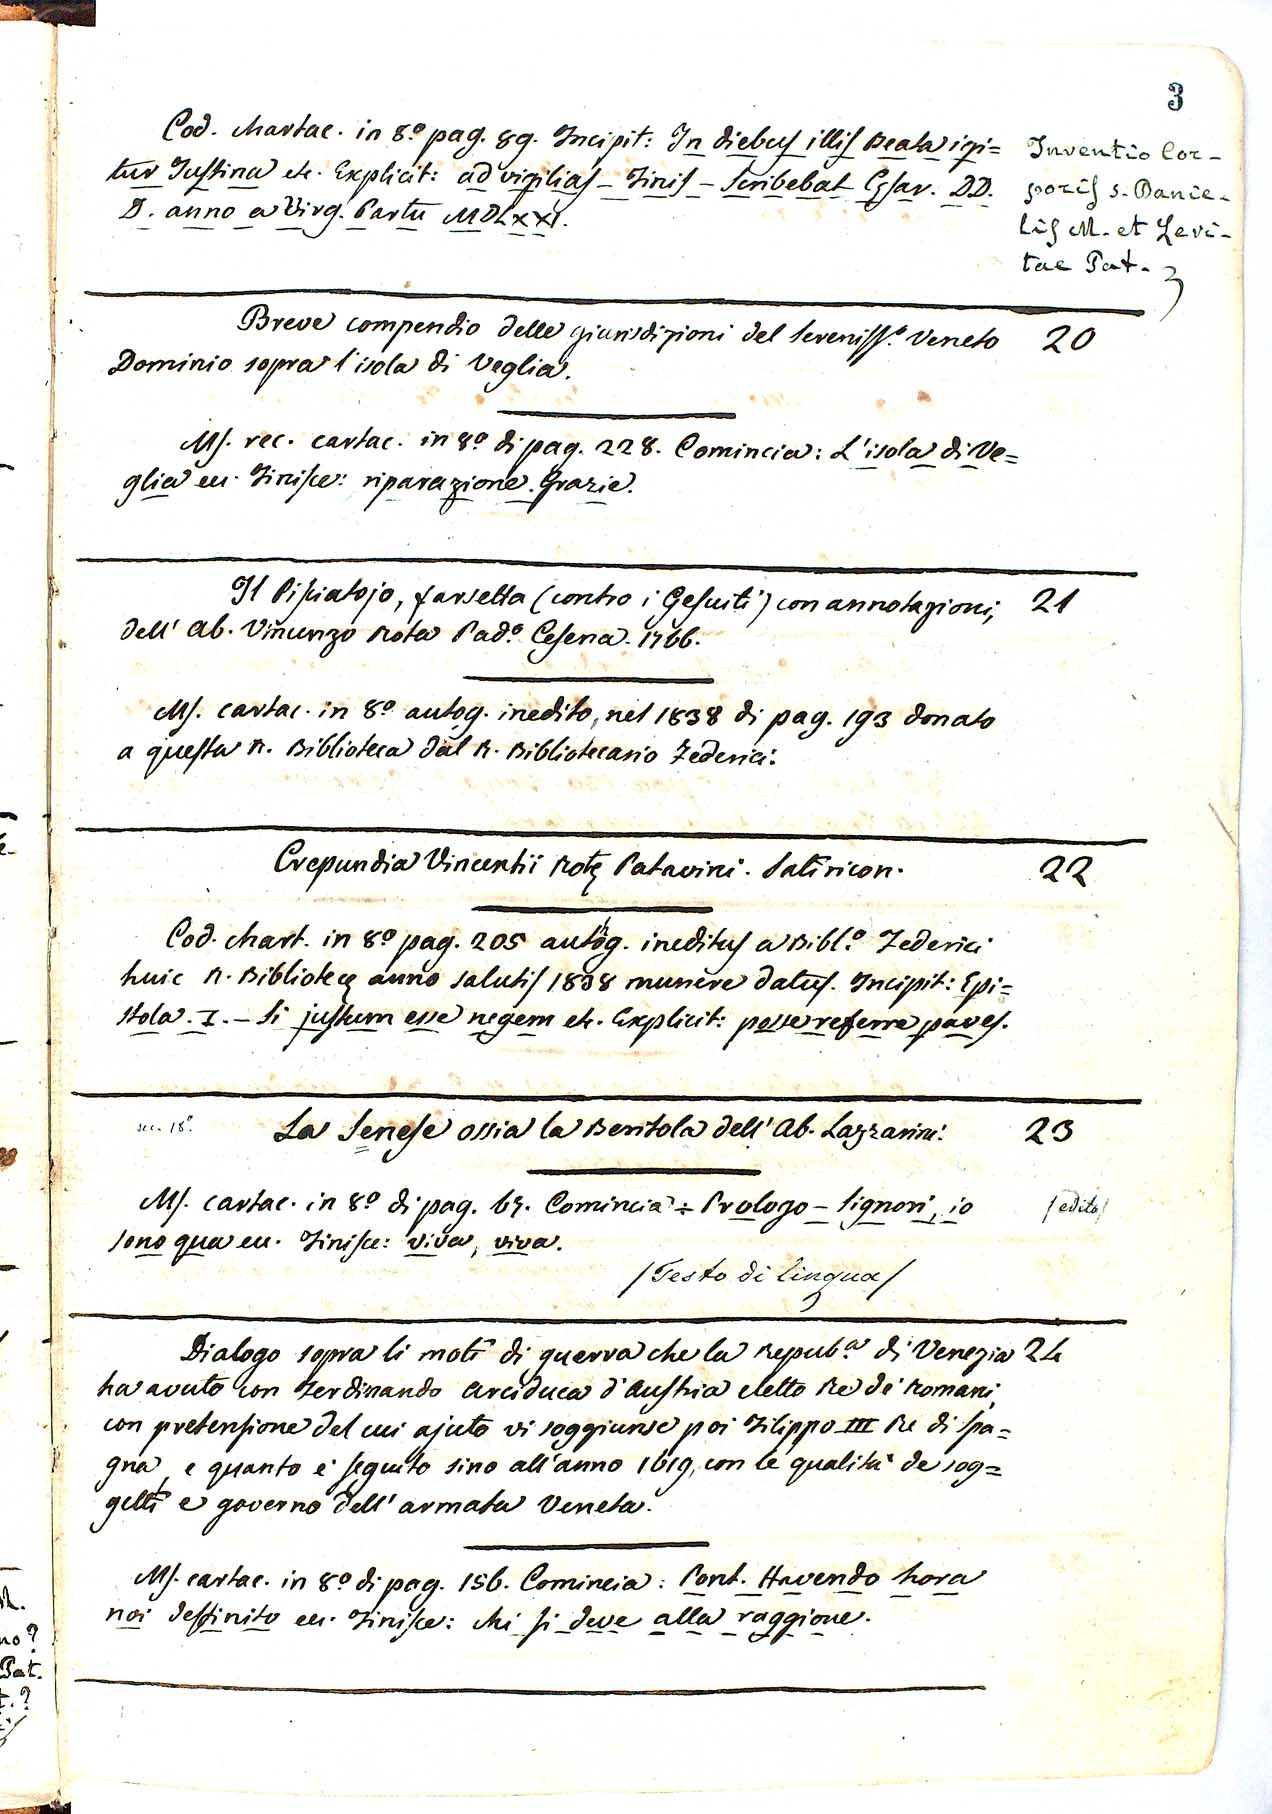 3
Cod. chartac. in 8.º pag. 89. Incipit: In diebus illis Beata igi=
tur Justina etc. Explicit: ad vigilias - Finis - Scribebat Cęsar. DD.
D. anno a Virg. Partu MDLXXI.
Inventio Cor-
poris s. Danie-
lis M. et Levi-
tae Pat.
Breve compendio delle giurisdizioni del Sereniss.º Veneto 20
Dominio sopra l'isola di Veglia.
Ms. rec. cartac. in 8.º di pag. 228. Comincia: L'isola di Ve=
glia ec. Finisce: riparazione. Grazie.
Il Pisciatojo, farsetta (contro i Gesuiti) con annotazioni, 21
dell' Ab. Vincenzo Rota Pad.º Cesena. 1766.
Ms. cartac. in 8.º autog. inedito, nel 1838 di pag. 193 donato
a questa R. Biblioteca dal R. Bibliotecario Federici.
Crepundia Vincentii Rotę Patavini. Satiricon. 22
Cod. chart. in 8.º pag. 205 autog. ineditus a Bibl.º Federici
huic R. Bibliotecę anno salutis 1838 munere datus. Incipit: Epi=
stola. I. - Si justum esse negem etc. Explicit: posse referre paves.
sec. 18.º La Senese ossia la Bentola dell' Ab. Lazzarini. 23
Ms. cartac. in 8.º di pag. 67. Comincia: Prologo - Signori, io /edito/
sono qua ec. Finisce: viva, viva.
/Testo di lingua/
Dialogo sopra li moti di guerra che la Repub.ª di Venezia 24
ha avuto con Ferdinando Arciduca d'Austria eletto Re de' Romani,
con pretensione del cui ajuto vi soggiunse poi Filippo III Re di Spa=
gna, e quanto è seguito sino all'anno 1619, con le qualità de sog=
getti e governo dell' armata Veneta.
Ms. cartac. in 8.º di pag. 156. Comincia: Pont. Havendo hora
noi destinito ec. Finisce: chi si deve alla raggione.